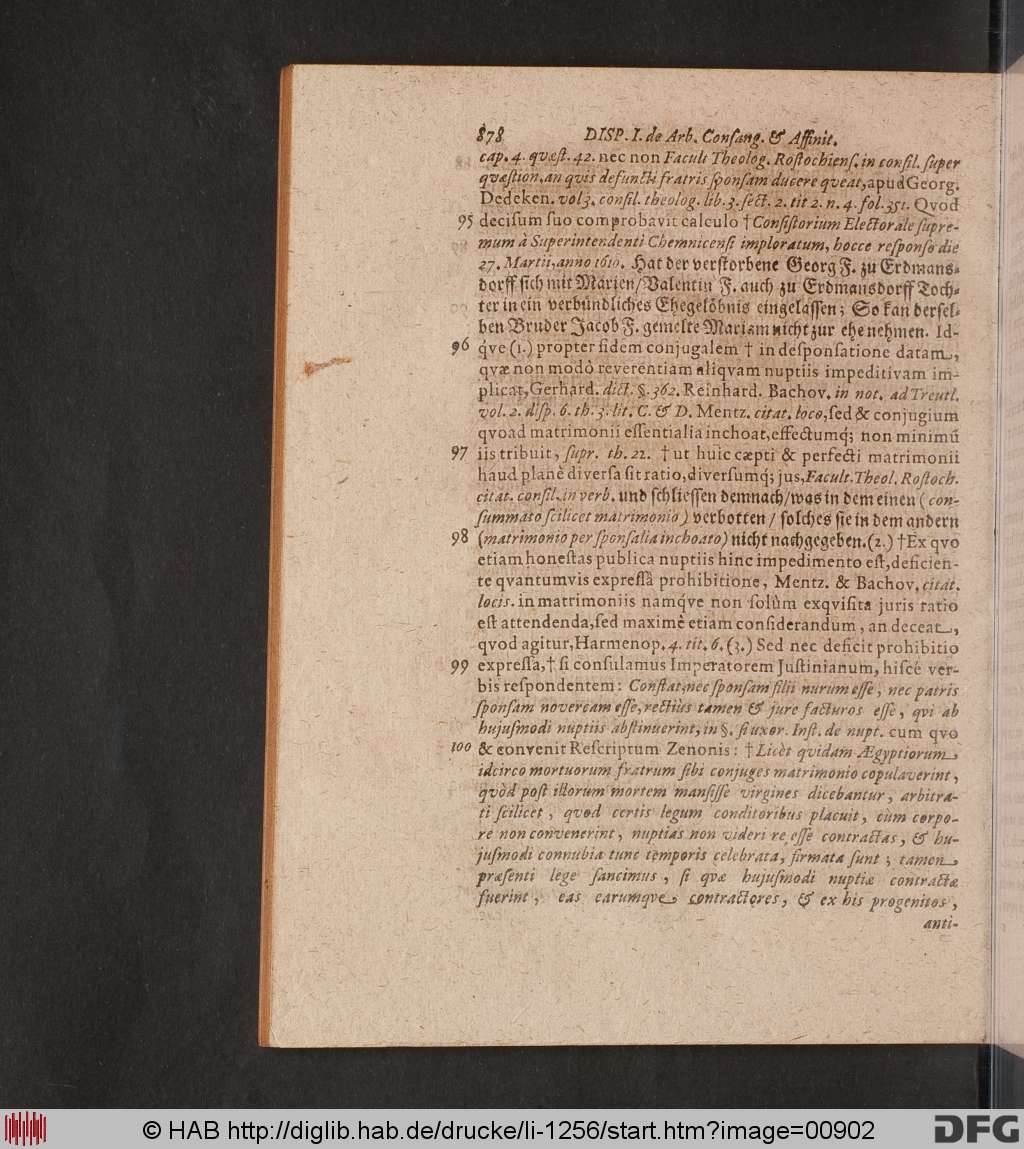 878 DISP. I. de Arb. Conſang. & Affinit.
cap. 4. qvæſt. 42. nec non Facult Theolog. Roſtochienſ. in conſil. ſuper
qvæſtion. an qvis defuncti fratris ſponſam ducere qveat, apud Georg.
Dedeken. vol 3. conſil. theolog. lib. 3. ſect. 2. tit 2. n. 4. fol. 351. Qvod
95 deciſum ſuo comprobavit calculo † Conſiſtorium Electorale ſupre-
mum à Superintendenti Chemnicenſi imploratum, hocce reſponſo die
27. Martii, anno 1610. Hat der verſtorbene Georg F. zu Erdmans-
dorff ſich mit Marien/Valentin F. auch zu Erdmansdorff Toch-
ter in ein verbündliches Ehegelöbnis eingelaſſen; So kan derſel-
ben Bruder Jacob F. gemelte Mariam nicht zur ehe nehmen. Id-
96 q́ve (1.) propter fidem conjugalem † in deſponſatione datam,
qvæ non modò reverentiam aliqvam nuptiis impeditivam im-
plicat, Gerhard. dict. §. 362. Reinhard. Bachov. in not. ad Treutl.
vol. 2. diſp. 6. th. 3. lit. C. & D. Mentz. citat. loco, ſed & conjugium
qvoad matrimonii eſſentialia inchoat, effectumq́; non minimū
97 iis tribuit, ſupr. th. 22. † ut huic cæpti & perfecti matrimonii
haud planè diverſa ſit ratio, diverſumq́; jus, Facult. Theol. Roſtoch.
citat. conſil. in verb. und ſchlieſſen demnach/was in dem einen (con-
ſummato ſcilicet matrimonio) verbotten / ſolches ſie in dem andern
98 (matrimonio per ſponſalia inchoato) nicht nachgegeben. (2.) † Ex qvo
etiam honeſtas publica nuptiis hinc impedimento eſt, deficien-
te qvantumvis expreſſâ prohibitione, Mentz. & Bachov. citat.
locis. in matrimoniis namq́ve non ſolùm exqviſita juris ratio
eſt attendenda, ſed maximè etiam conſiderandum, an deceat,
qvod agitur, Harmenop. 4. tit. 6. (3.) Sed nec deficit prohibitio
99 expreſſa, † ſi conſulamus Imperatorem Juſtinianum, hiſcé ver-
bis reſpondentem: Conſtat, nec ſponſam filii nurum eſſe, nec patris
ſponſam novercam eſſe, rectiùs tamen & jure facturos eſſe, qvi ab
hujuſmodi nuptiis abſtinuerint, in §. ſi uxor. Inſt. de nupt. cum qvo
100 & convenit Reſcriptum Zenonis: † Licèt qvidam Ægyptiorum
idcirco mortuorum fratrum ſibi conjuges matrimonio copulaverint,
qvòd poſt illorum mortem manſiſſe virgines dicebantur, arbitra-
ti ſcilicet, qvod certis legum conditoribus placuit, cùm corpo-
re non convenerint, nuptias non videri re eſſe contractas, & hu-
juſmodi connubia tunc temporis celebrata, firmata ſunt; tamen
præſenti lege ſancimus, ſi qvæ hujuſmodi nuptiæ contractæ
fuerint, eas earumqve contractores, & ex his progenitos,
anti-
© HAB http://diglib.hab.de/drucke/li-1256/start.htm?image=00902
DFG